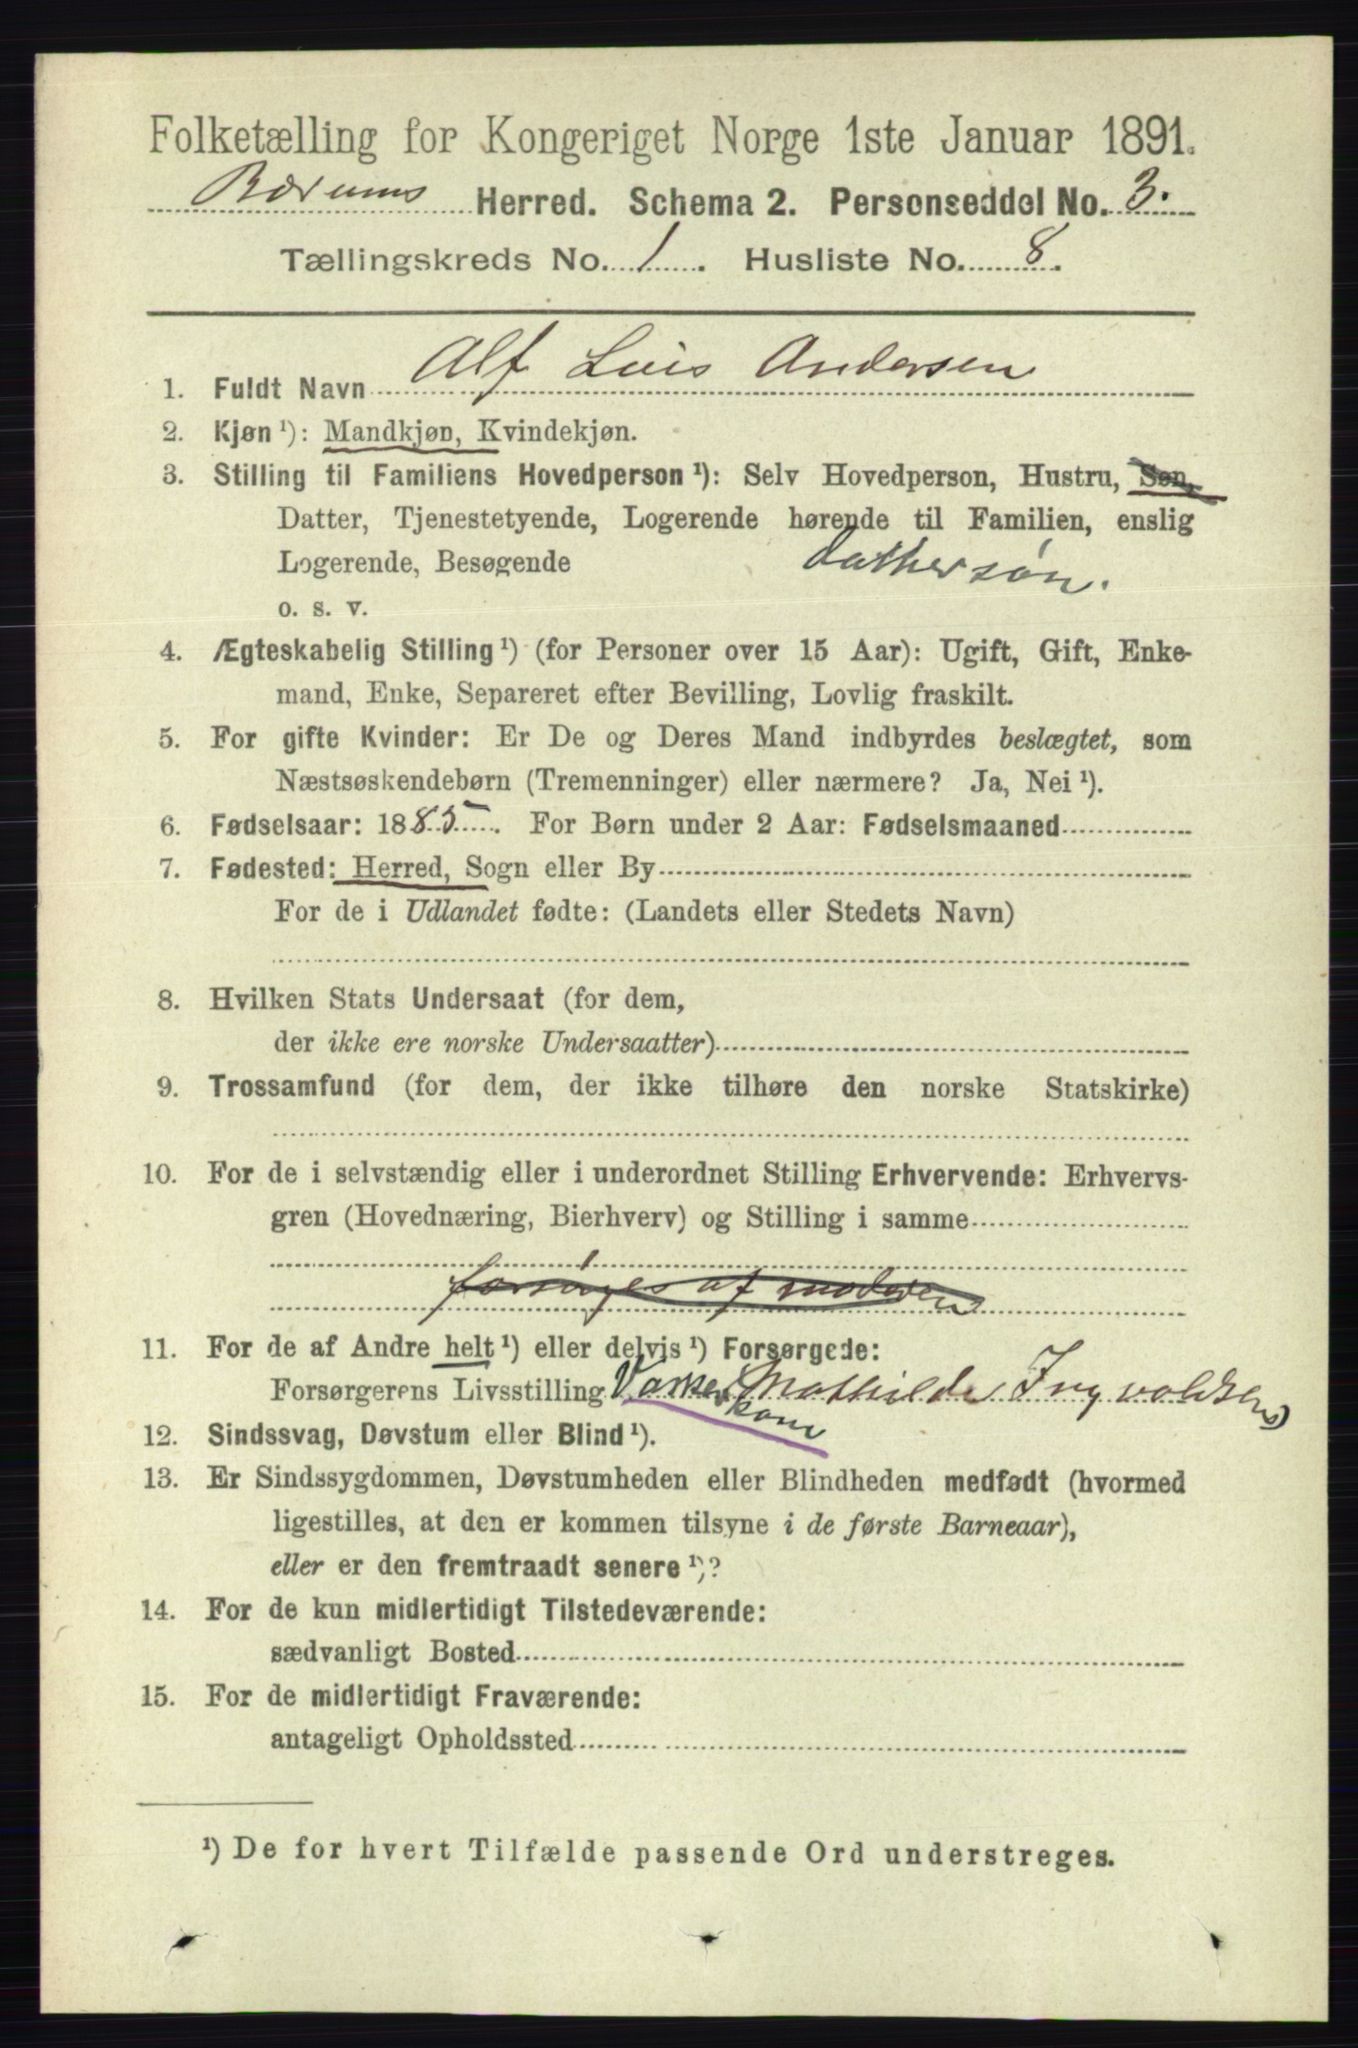 Folketælling for Kongeriget Norge 1ste Januar 1891.
Bærums Herred. Schema 2. Personseddel No. 3.
Tællingskreds No. 1. Husliste No. 8.
1. Fuldt Navn Alf Luis Andersen
2. Kjøn ¹): Mandkjøn, Kvindekjøn.
3. Stilling til Familiens Hovedperson ¹): Selv Hovedperson, Hustru, Søn,
Datter, Tjenestetyende, Logerende hørende til Familien, enslig
Logerende, Besøgende dattersøn.
o. s. v.
4. Ægteskabelig Stilling ¹) (for Personer over 15 Aar): Ugift, Gift, Enke-
mand, Enke, Separeret efter Bevilling, Lovlig fraskilt.
5. For gifte Kvinder: Er De og Deres Mand indbyrdes beslægtet, som
Næstsøskendebørn (Tremenninger) eller nærmere? Ja, Nei ¹).
6. Fødselsaar: 1885. For Børn under 2 Aar: Fødselsmaaned
7. Fødested: Herred, Sogn eller By
For de i Udlandet fødte: (Landets eller Stedets Navn)
8. Hvilken Stats Undersaat (for dem,
der ikke ere norske Undersaatter)
9. Trossamfund (for dem, der ikke tilhøre den norske Statskirke)
10. For de i selvstændig eller i underordnet Stilling Erhvervende: Erhvervs-
gren (Hovednæring, Bierhverv) og Stilling i samme
forsørges af moderen
11. For de af Andre helt ¹) eller delvis ¹) Forsørgede:
Forsørgerens Livsstilling Vasker (Mathilde Ingvaldsen)
kone
12. Sindssvag, Døvstum eller Blind ¹).
13. Er Sindssygdommen, Døvstumheden eller Blindheden medfødt (hvormed
ligestilles, at den er kommen tilsyne i de første Barneaar),
eller er den fremtraadt senere ¹)?
14. For de kun midlertidigt Tilstedeværende:
sædvanligt Bosted
15. For de midlertidigt Fraværende:
antageligt Opholdssted
¹) De for hvert Tilfælde passende Ord understreges.